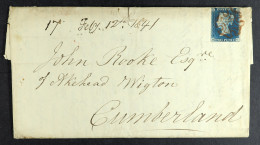 17 Feby. 12th 1841
John Rooke Esqre
of Akehead Wigton
Cumberland